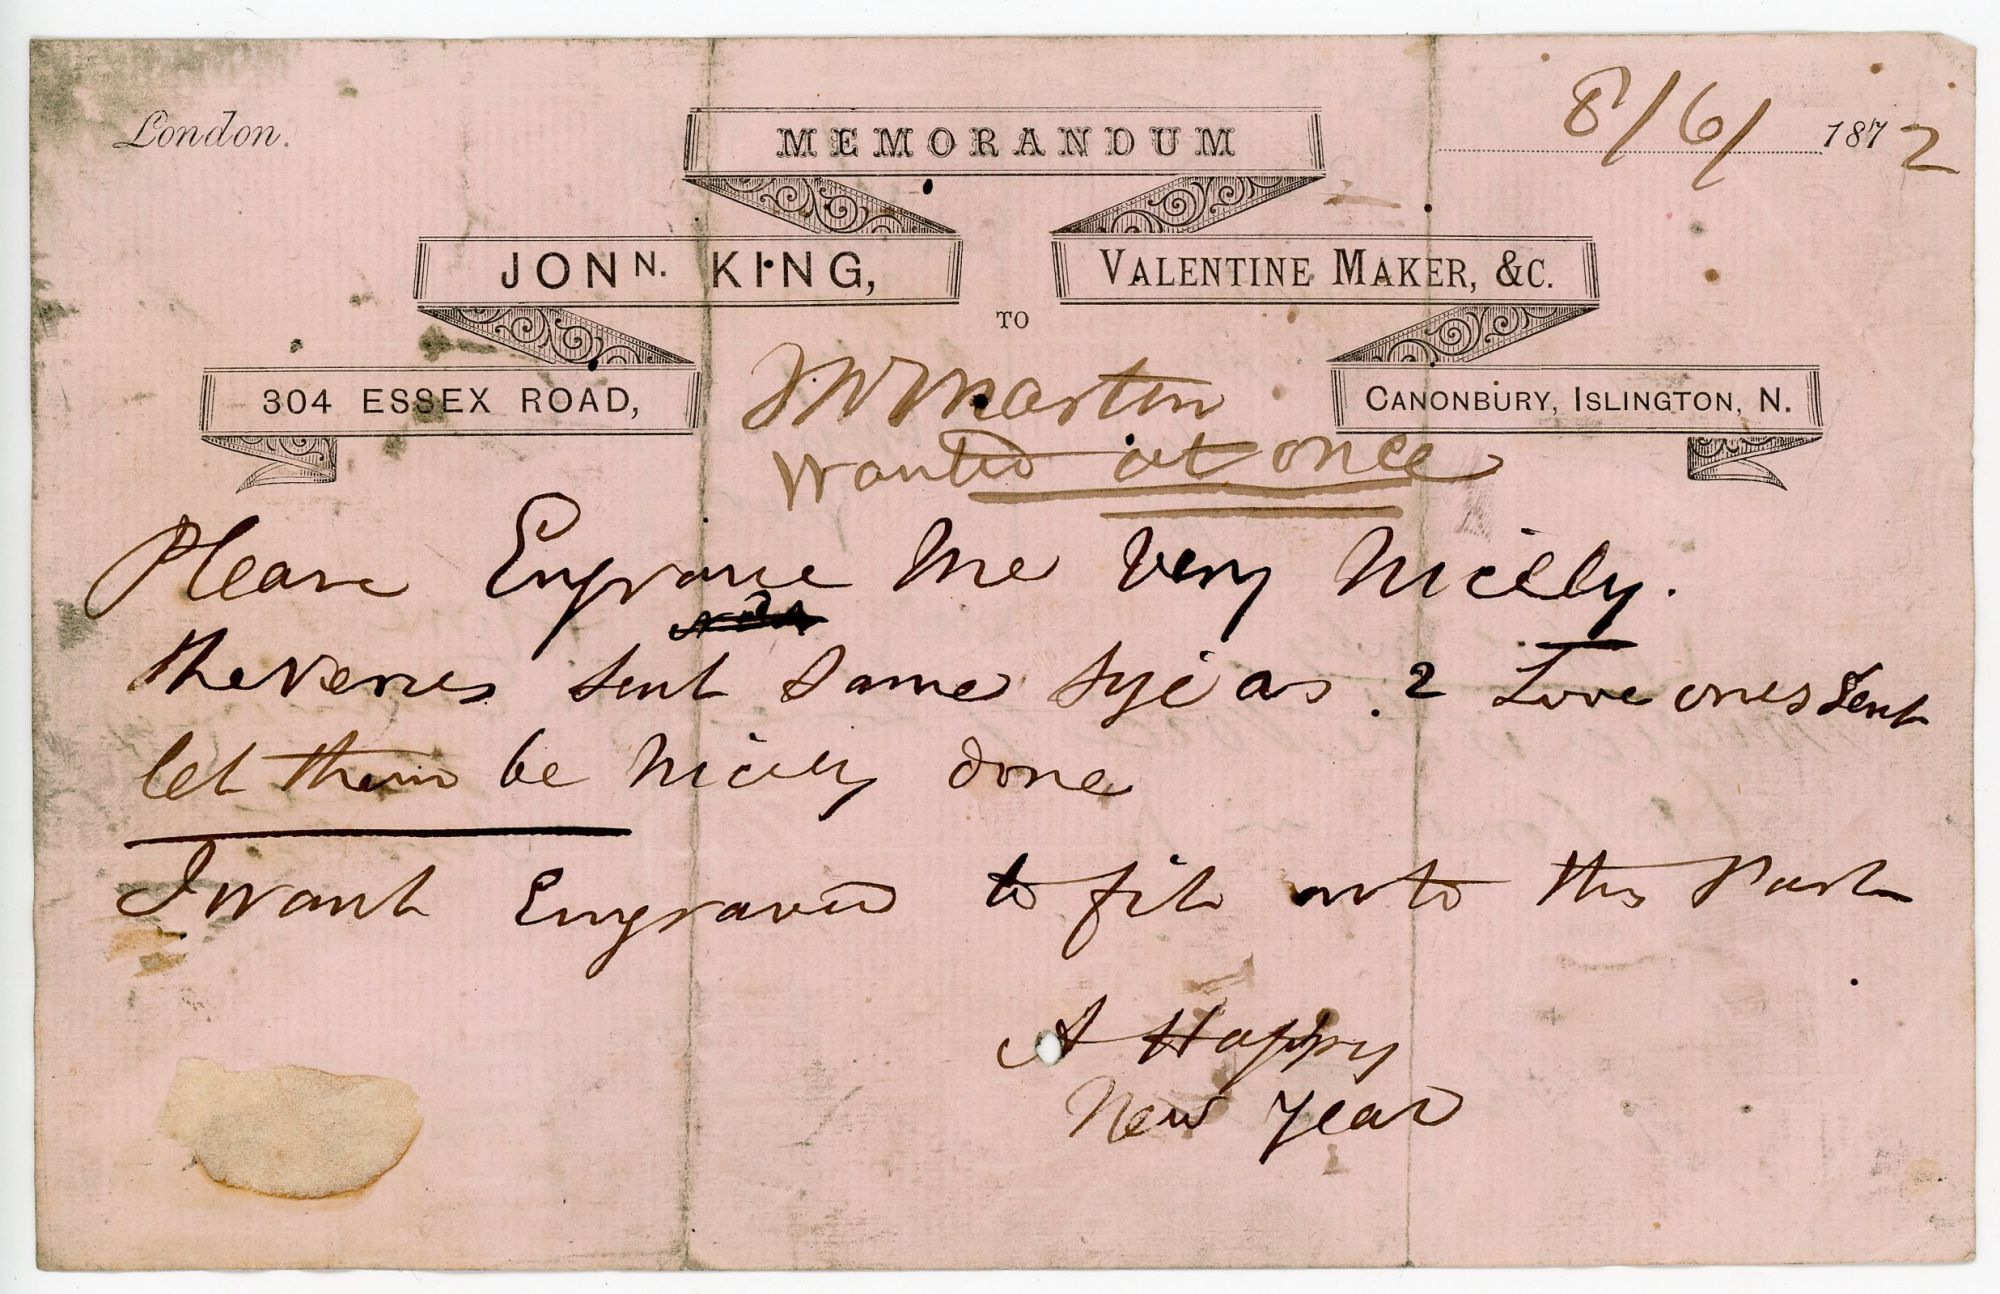 London.
MEMORANDUM
8/6/ 1872
JONN. KING,
VALENTINE MAKER, &C.
TO
304 ESSEX ROAD,
CANONBURY, ISLINGTON, N.
Martin
Wanted at once
Please Engrave Me Very Nicelly.
the Verses Sent Same Syie as 2 Love ones Sent
let them be Nicely done
I Want Engraved to fit onto this Part
A Happy
New Year